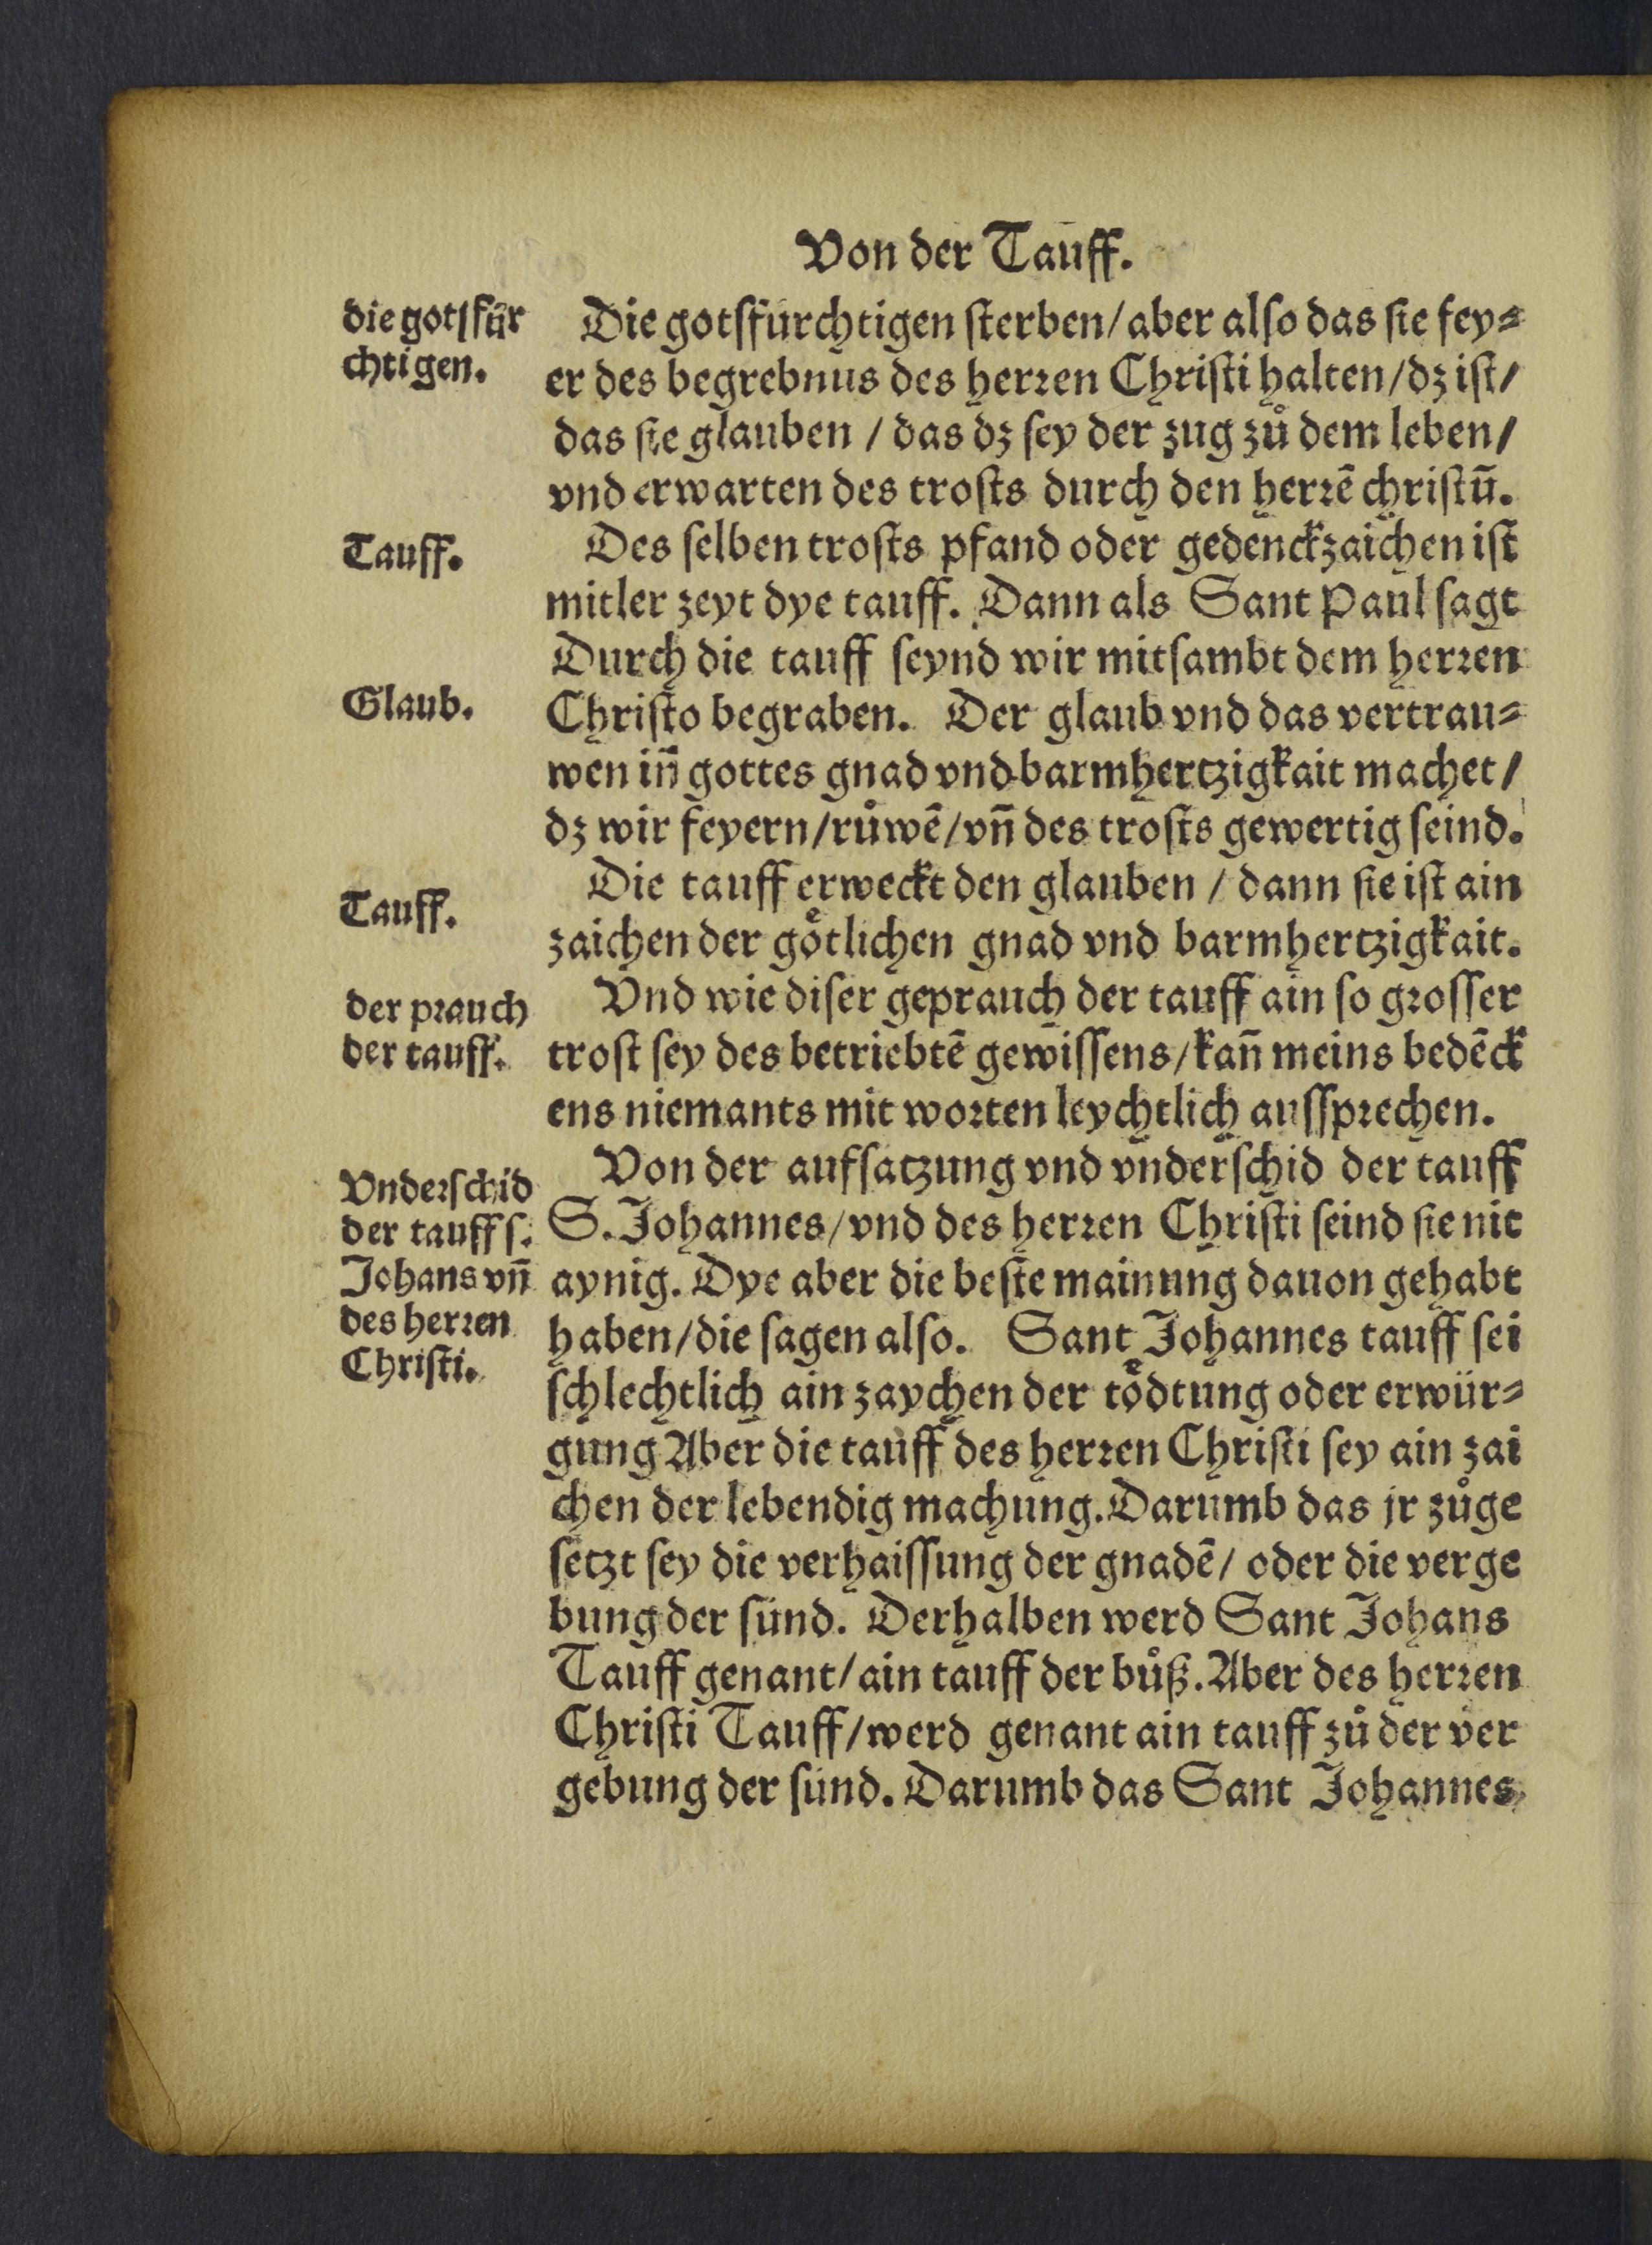 Von der Tauff.
die gotſfür
chtigen.
Die gotsfürchtigen ſterben/aber alſo das ſie fey⸗
er des begrebnus des herꝛen Chriſti halten/dz iſt/
das ſie glauben / das dz ſey der zug zů dem leben/
vnd erwarten des troſts durch den herꝛē chriſtū.
Tauff.
Des ſelben troſts pfand oder gedenckzaichen iſt
mitler zeyt dye tauff. Dann als Sant Paul ſagt
Durch die tauff ſeynd wir mitſambt dem herꝛen
Glaub.
Chriſto begraben. Der glaub vnd das vertrau⸗
wen in̄ gottes gnad vnd barmhertzigkait machet/
dz wir feyern/růwē/vn̄ des troſts gewertig ſeind.
Tauff.
Die tauff erweckt den glauben / dann ſie iſt ain
zaichen der goͤtlichen gnad vnd barmhertzigkait.
der pꝛauch
der tauff.
Vnd wie diſer geprauch der tauff ain ſo gꝛoſſer
troſt ſey des betriebtē gewiſſens/kan̄ meins bedēck
ens niemants mit woꝛten leychtlich auſſpꝛechen.
Vnderſchid
der tauff ſ.
Johans vn̄
des herꝛen
Chriſti.
Von der aufſatzung vnd vnderſchid der tauff
S. Johannes/vnd des herꝛen Chriſti ſeind ſie nit
aynig. Dye aber die beſte mainung dauon gehabt
haben/die ſagen alſo. Sant Johannes tauff ſei
ſchlechtlich ain zaychen der toͤdtung oder erwür⸗
gung Aber die tauff des herꝛen Chriſti ſey ain zai
chen der lebendig machung. Darumb das jr zůge
ſetzt ſey die verhaiſſung der gnadē/ oder die verge
bung der ſünd. Derhalben werd Sant Johans
Tauff genant/ain tauff der bůß. Aber des herꝛen
Chriſti Tauff/werd genant ain tauff zů der ver
gebung der ſünd. Darumb das Sant Johannes